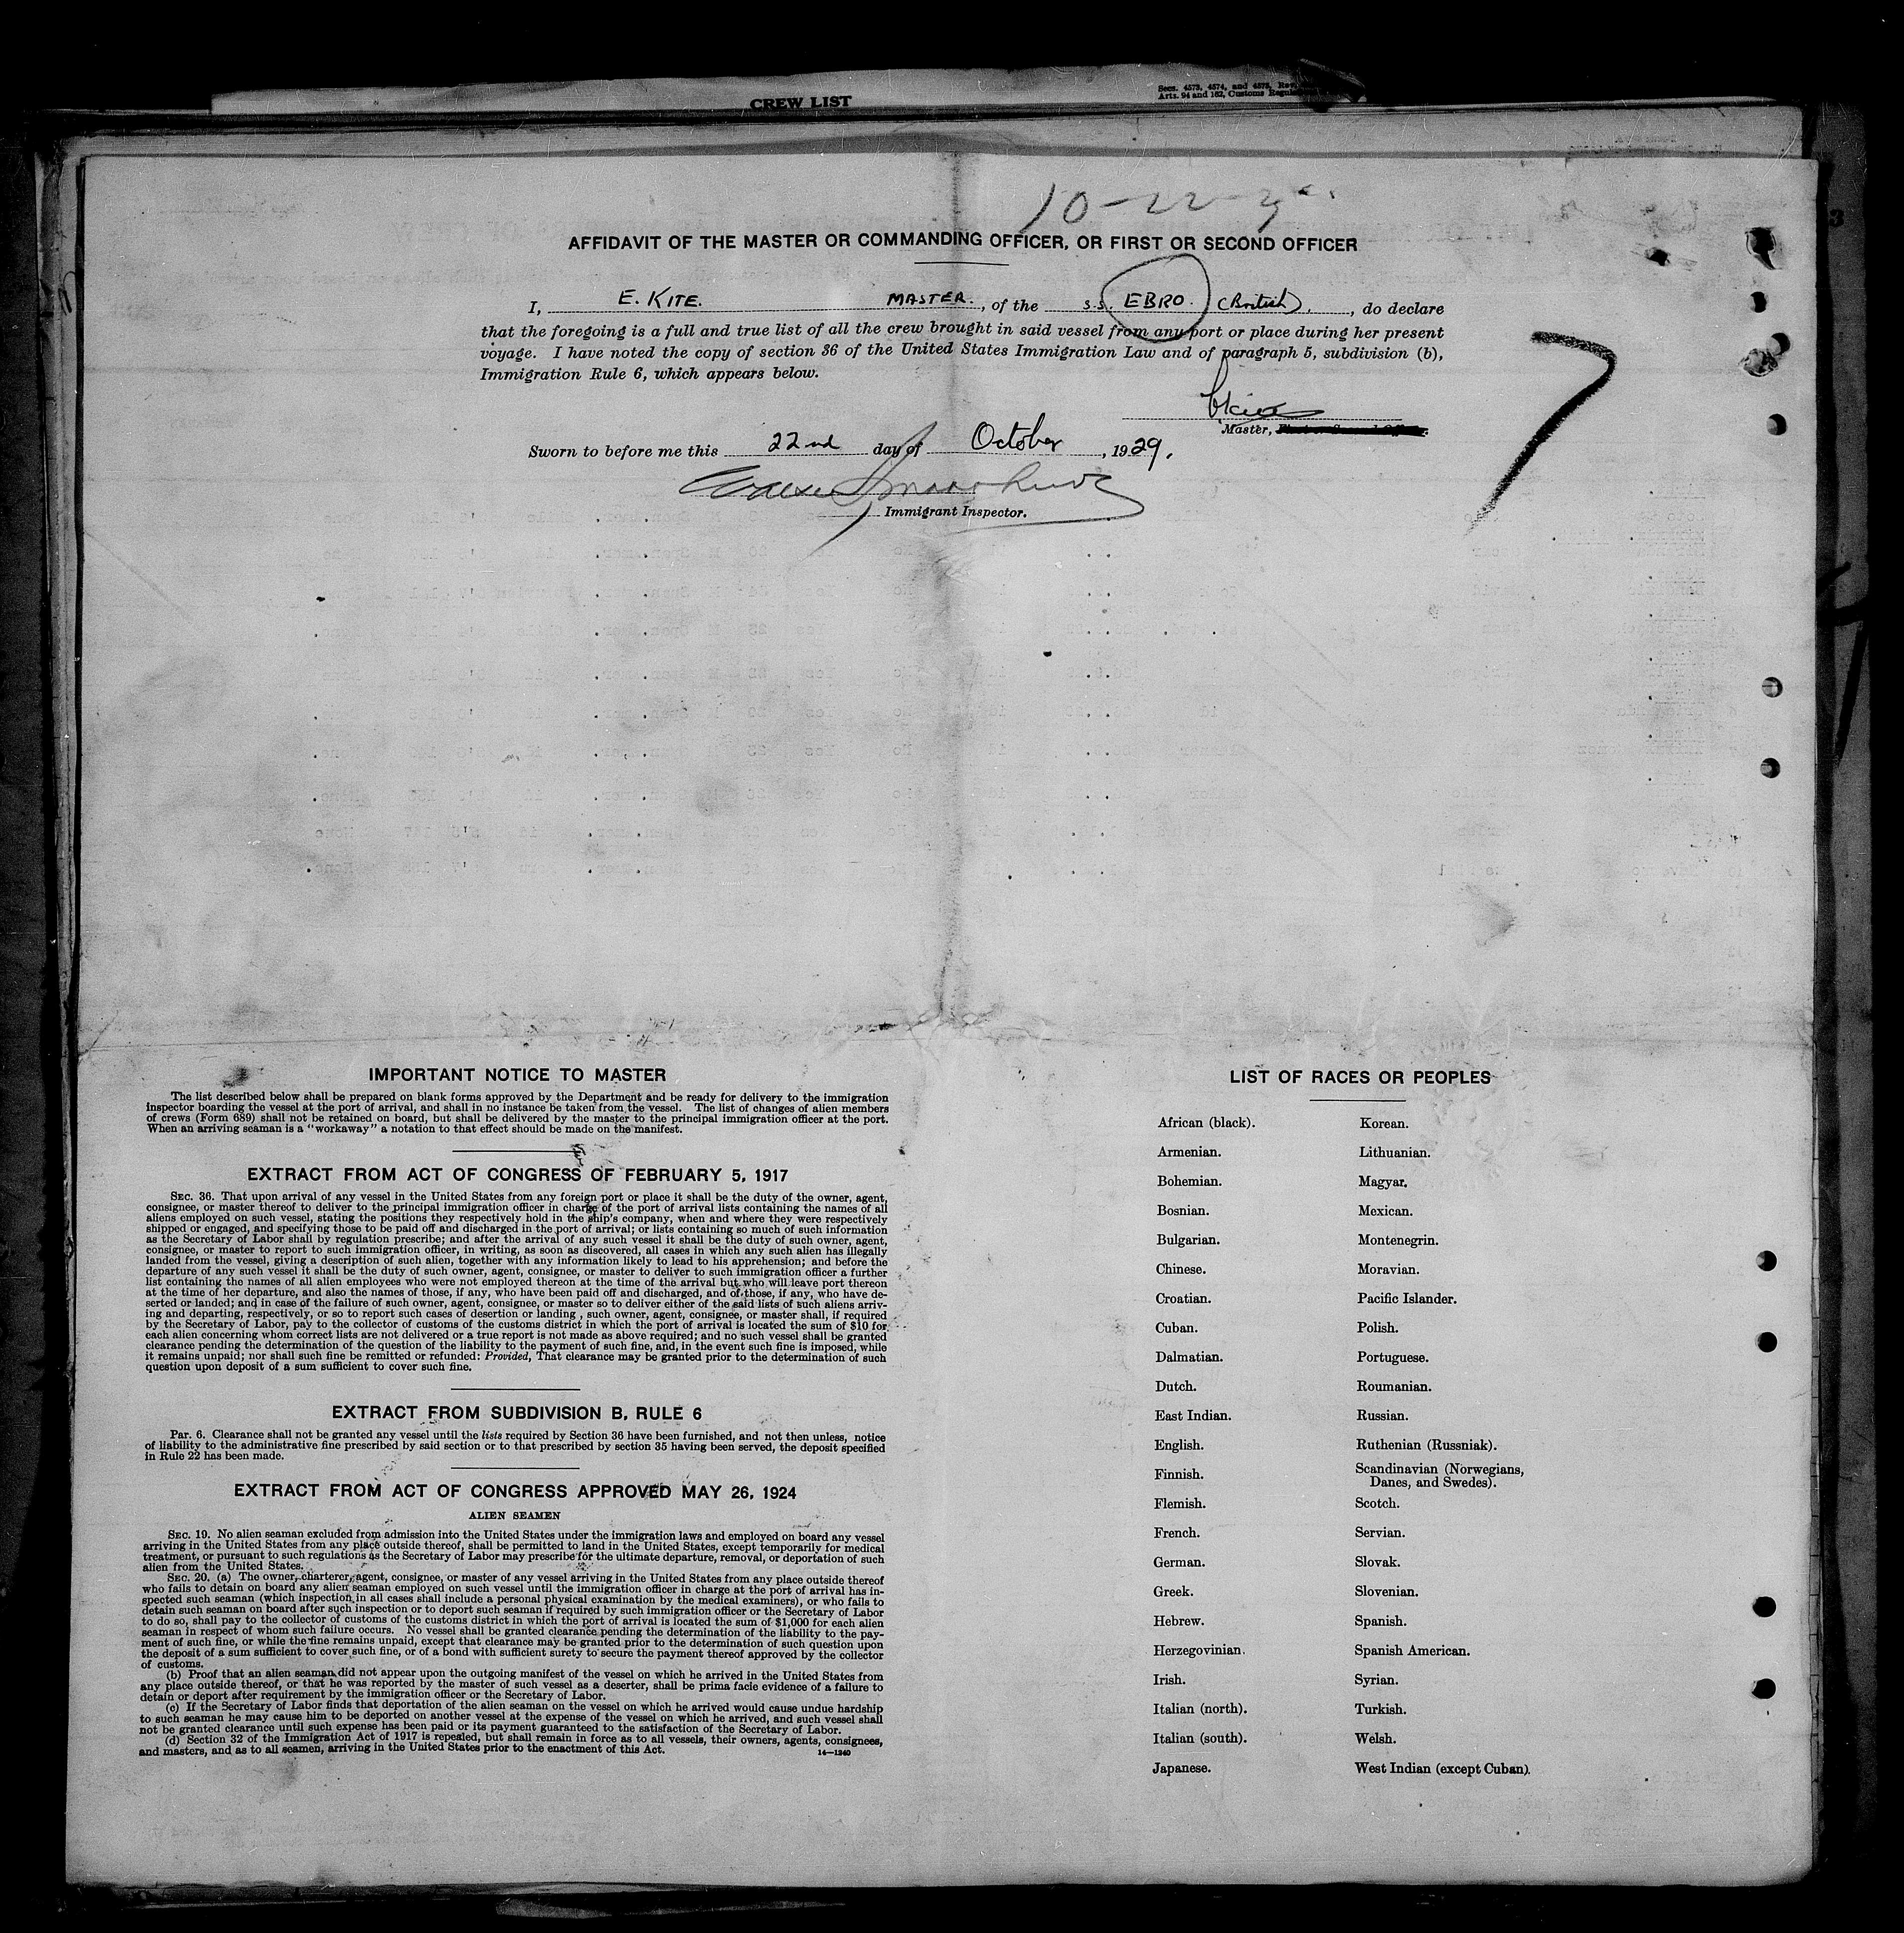 CREW LIST
Secs. 4573, 4574, and 4575, Rev.
Arts. 94 and 162, Customs Regul
10-22-
AFFIDAVIT OF THE MASTER OR COMMANDING OFFICER, OR FIRST OR SECOND OFFICER
I, E. KITE. MASTER., of the S.S. EBRO. (British)., do declare
that the foregoing is a full and true list of all the crew brought in said vessel from any port or place during her present
voyage. I have noted the copy of section 36 of the United States Immigration Law and of paragraph 5, subdivision (b),
Immigration Rule 6, which appears below.
EKite
Master,
Sworn to before me this 22nd day of October, 1929.
Immigrant Inspector.
7
IMPORTANT NOTICE TO MASTER
The list described below shall be prepared on blank forms approved by the Department and be ready for delivery to the immigration
inspector boarding the vessel at the port of arrival, and shall in no instance be taken from the vessel. The list of changes of alien members
of crews (Form 689) shall not be retained on board, but shall be delivered by the master to the principal immigration officer at the port.
When an arriving seaman is a "workaway" a notation to that effect should be made on the manifest.
EXTRACT FROM ACT OF CONGRESS OF FEBRUARY 5, 1917
SEC. 36. That upon arrival of any vessel in the United States from any foreign port or place it shall be the duty of the owner, agent,
consignee, or master thereof to deliver to the principal immigration officer in charge of the port of arrival lists containing the names of all
aliens employed on such vessel, stating the positions they respectively hold in the ship's company, when and where they were respectively
shipped or engaged, and specifying those to be paid off and discharged in the port of arrival; or lists containing so much of such information
as the Secretary of Labor shall by regulation prescribe; and after the arrival of any such vessel it shall be the duty of such owner, agent,
consignee, or master to report to such immigration officer, in writing, as soon as discovered, all cases in which any such alien has illegally
landed from the vessel, giving a description of such alien, together with any information likely to lead to his apprehension; and before the
departure of any such vessel it shall be the duty of such owner, agent, consignee, or master to deliver to such immigration officer a further
list containing the names of all alien employees who were not employed thereon at the time of the arrival but who will leave port thereon
at the time of her departure, and also the names of those, if any, who have been paid off and discharged, and of those, if any, who have de-
serted or landed; and in case of the failure of such owner, agent, consignee, or master so to deliver either of the said lists of such aliens arriv-
ing and departing, respectively, or so to report such cases of desertion or landing, such owner, agent, consignee, or master shall, if required
by the Secretary of Labor, pay to the collector of customs of the customs district in which the port of arrival is located the sum of $10 for
each alien concerning whom correct lists are not delivered or a true report is not made as above required; and no such vessel shall be granted
clearance pending the determination of the question of the liability to the payment of such fine, and, in the event such fine is imposed, while
it remains unpaid; nor shall such fine be remitted or refunded: Provided, That clearance may be granted prior to the determination of such
question upon deposit of a sum sufficient to cover such fine.
EXTRACT FROM SUBDIVISION B, RULE 6
Par. 6. Clearance shall not be granted any vessel until the lists required by Section 36 have been furnished, and not then unless, notice
of liability to the administrative fine prescribed by said section or to that prescribed by section 35 having been served, the deposit specified
in Rule 22 has been made.
EXTRACT FROM ACT OF CONGRESS APPROVED MAY 26, 1924
ALIEN SEAMEN
SEC. 19. No alien seaman excluded from admission into the United States under the immigration laws and employed on board any vessel
arriving in the United States from any place outside thereof, shall be permitted to land in the United States, except temporarily for medical
treatment, or pursuant to such regulations as the Secretary of Labor may prescribe for the ultimate departure, removal, or deportation of such
alien from the United States.
SEC. 20. (a) The owner, charterer, agent, consignee, or master of any vessel arriving in the United States from any place outside thereof
who fails to detain on board any alien seaman employed on such vessel until the immigration officer in charge at the port of arrival has in-
spected such seaman (which inspection in all cases shall include a personal physical examination by the medical examiners), or who fails to
detain such seaman on board after such inspection or to deport such seaman if required by such immigration officer or the Secretary of Labor
to do so, shall pay to the collector of customs of the customs district in which the port of arrival is located the sum of $1,000 for each alien
seaman in respect of whom such failure occurs. No vessel shall be granted clearance pending the determination of the liability to the pay-
ment of such fine, or while the fine remains unpaid, except that clearance may be granted prior to the determination of such question upon
the deposit of a sum sufficient to cover such fine, or of a bond with sufficient surety to secure the payment thereof approved by the collector
of customs.
(b) Proof that an alien seaman did not appear upon the outgoing manifest of the vessel on which he arrived in the United States from
any place outside thereof, or that he was reported by the master of such vessel as a deserter, shall be prima facie evidence of a failure to
detain or deport after requirement by the immigration officer or the Secretary of Labor.
(c) If the Secretary of Labor finds that deportation of the alien seaman on the vessel on which he arrived would cause undue hardship
to such seaman he may cause him to be deported on another vessel at the expense of the vessel on which he arrived, and such vessel shall
not be granted clearance until such expense has been paid or its payment guaranteed to the satisfaction of the Secretary of Labor.
(d) Section 32 of the Immigration Act of 1917 is repealed, but shall remain in force as to all vessels, their owners, agents, consignees,
and masters, and as to all seamen, arriving in the United States prior to the enactment of this Act.
14—1240
LIST OF RACES OR PEOPLES
African (black). Korean.
Armenian. Lithuanian.
Bohemian. Magyar.
Bosnian. Mexican.
Bulgarian. Montenegrin.
Chinese. Moravian.
Croatian. Pacific Islander.
Cuban. Polish.
Dalmatian. Portuguese.
Dutch. Roumanian.
East Indian. Russian.
English. Ruthenian (Russniak).
Finnish. Scandinavian (Norwegians,
Danes, and Swedes).
Flemish. Scotch.
French. Servian.
German. Slovak.
Greek. Slovenian.
Hebrew. Spanish.
Herzegovinian. Spanish American.
Irish. Syrian.
Italian (north). Turkish.
Italian (south). Welsh.
Japanese. West Indian (except Cuban).